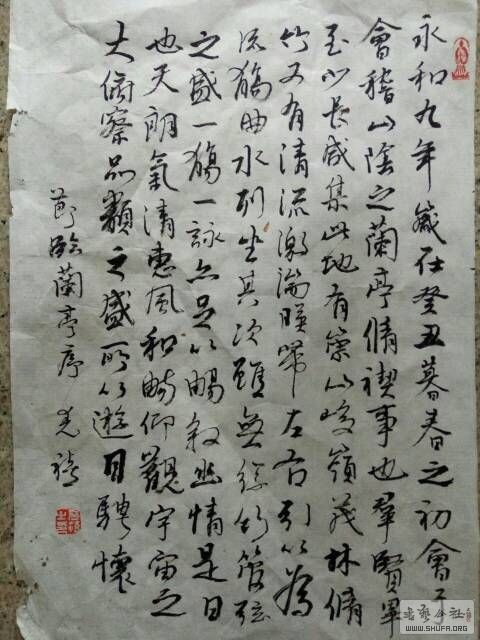 永和九年歲在癸丑暮春之初會于
會稽山陰之蘭亭脩禊事也羣賢畢
至少長咸集此地有崇山峻嶺茂林脩
竹又有清流激湍暎帶左右引以為
流觴曲水列坐其次雖無絲竹管弦
之盛一觴一詠亦足以暢叙幽情是日
也天朗氣清惠風和暢仰觀宇宙之
大俯察品類之盛所以遊目騁懷
節臨蘭亭序
书艺公社
WWW.SHUFA.ORG